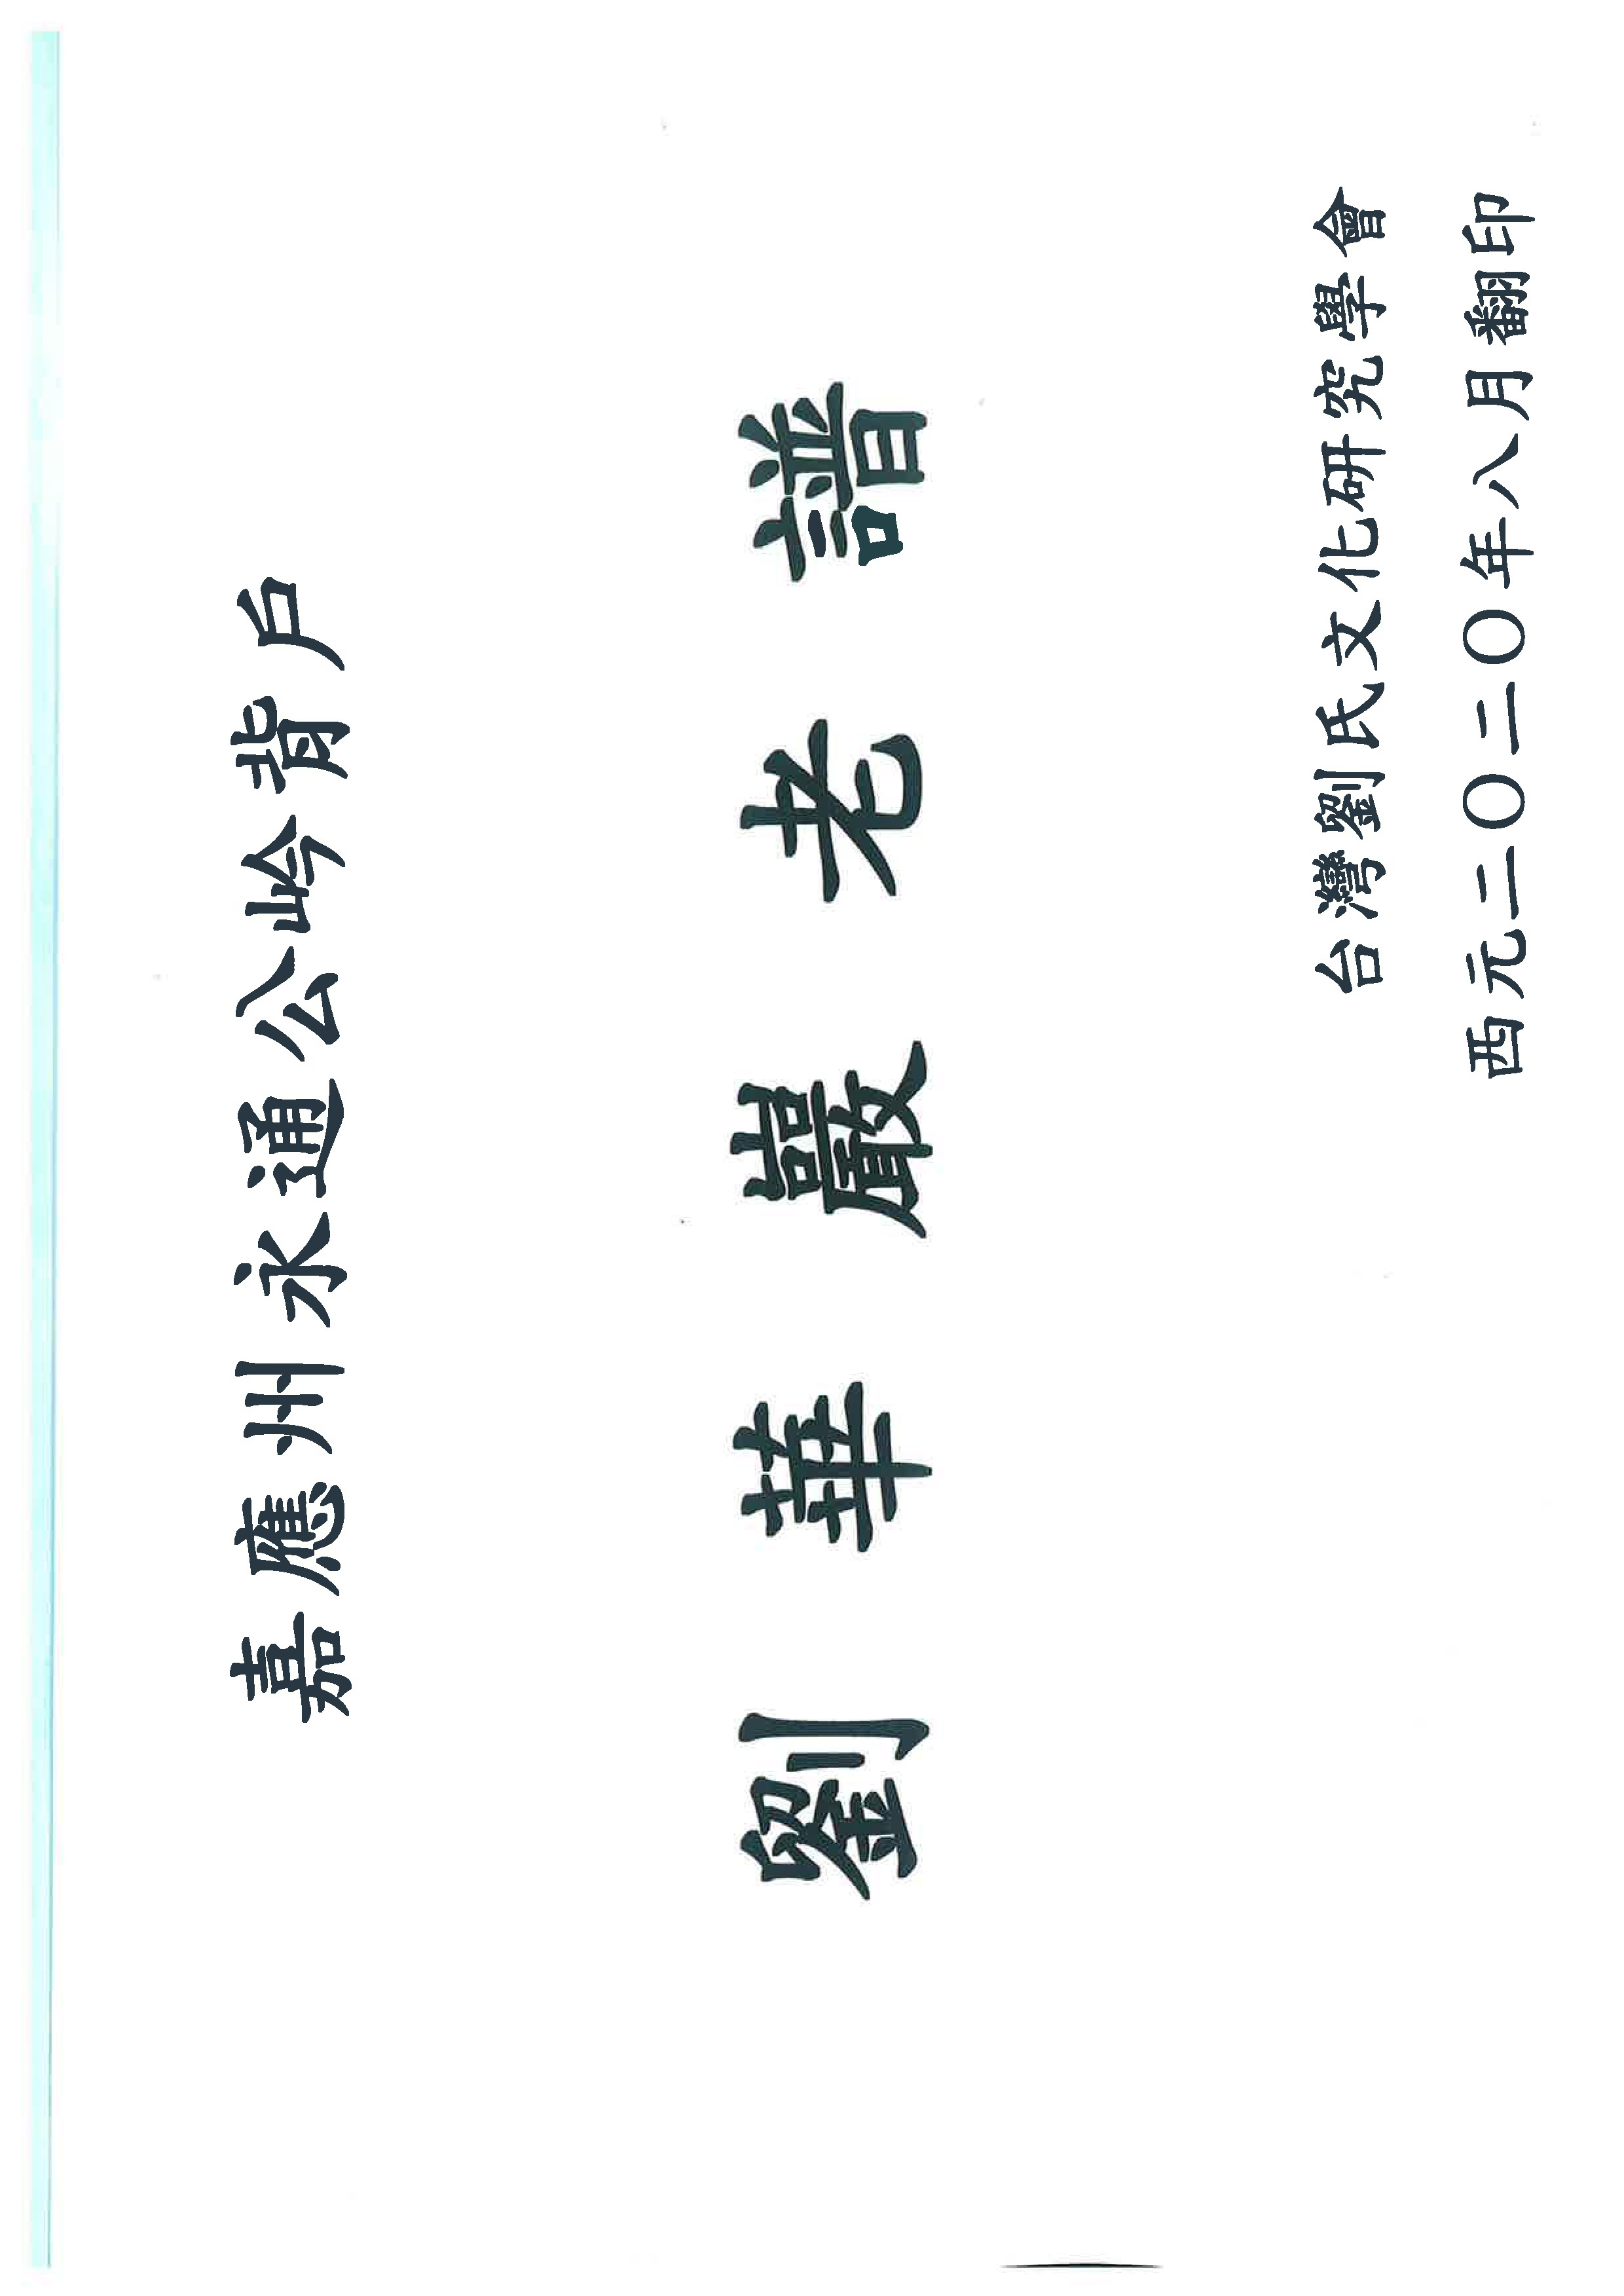 嘉應州永通公岭背戶
劉華嚴老譜
台灣劉氏文化研究學會
西元二〇二〇年八月翻印